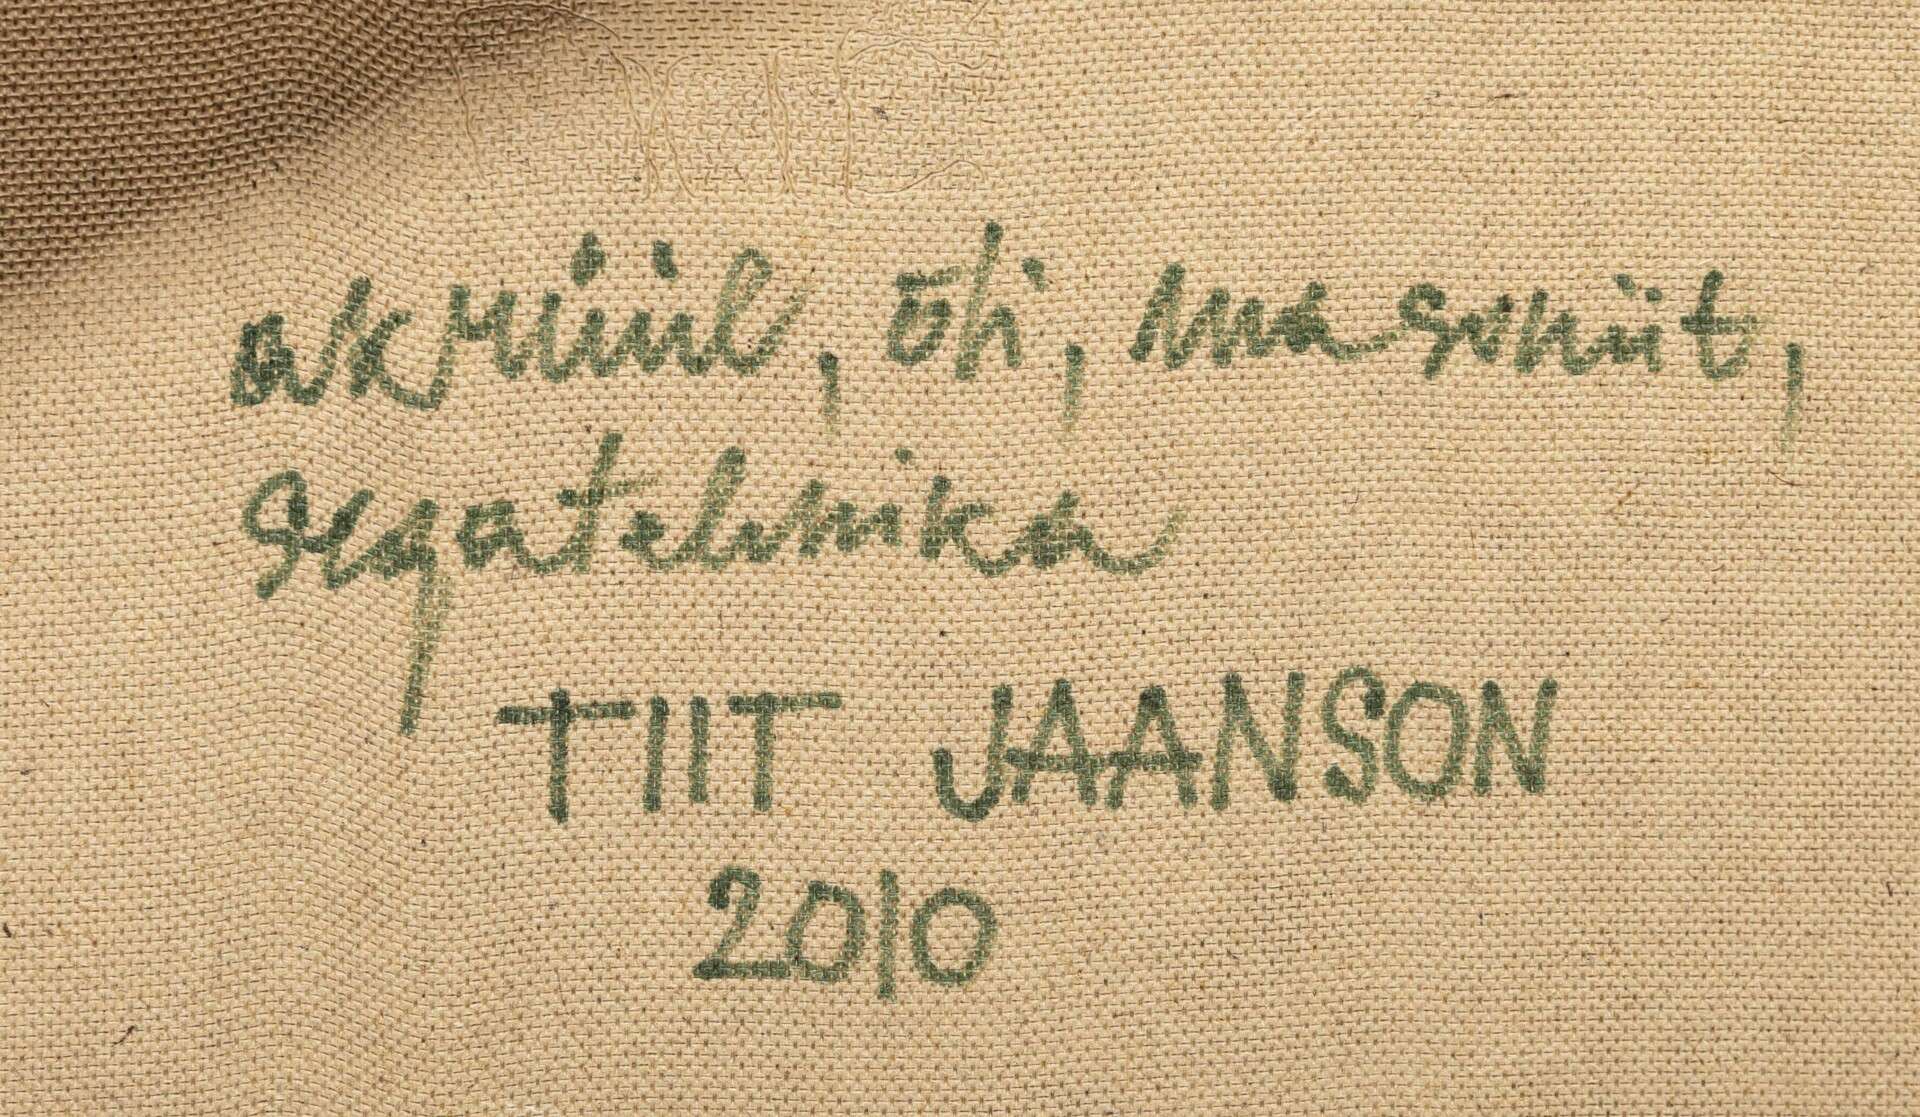 akrüül, õli, masoniit,
segatehnika
TIIT JAANSON
2010